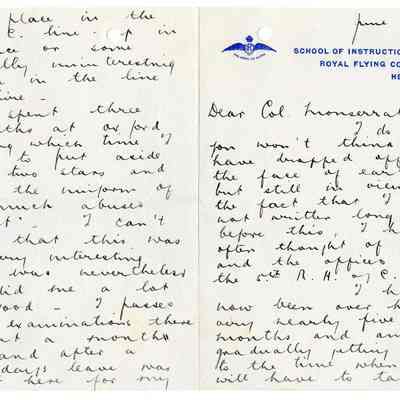 place in the
C. line-up in
or some
uninteresting
in the line
spent three
at oxford
which time I
to put aside
two stars and
the uniform of
much abused
I can't
that this was
interesting
was nevertheless
did me a lot
good - I passed
examinations there
a month
and after a
days leave was
here for my
June
SCHOOL OF INSTRUCTIO
ROYAL FLYING CO
HE
Dear Col. Monserrat
I do
you won't think
have dropped off
the face of ear
but still in view
the fact that I
not written long
before this, I h
often thought of
and the officers
the 5th R. H. of C.
I h
now been over h
very nearly five
months and am
gradually getting
to the time when
will have to ta